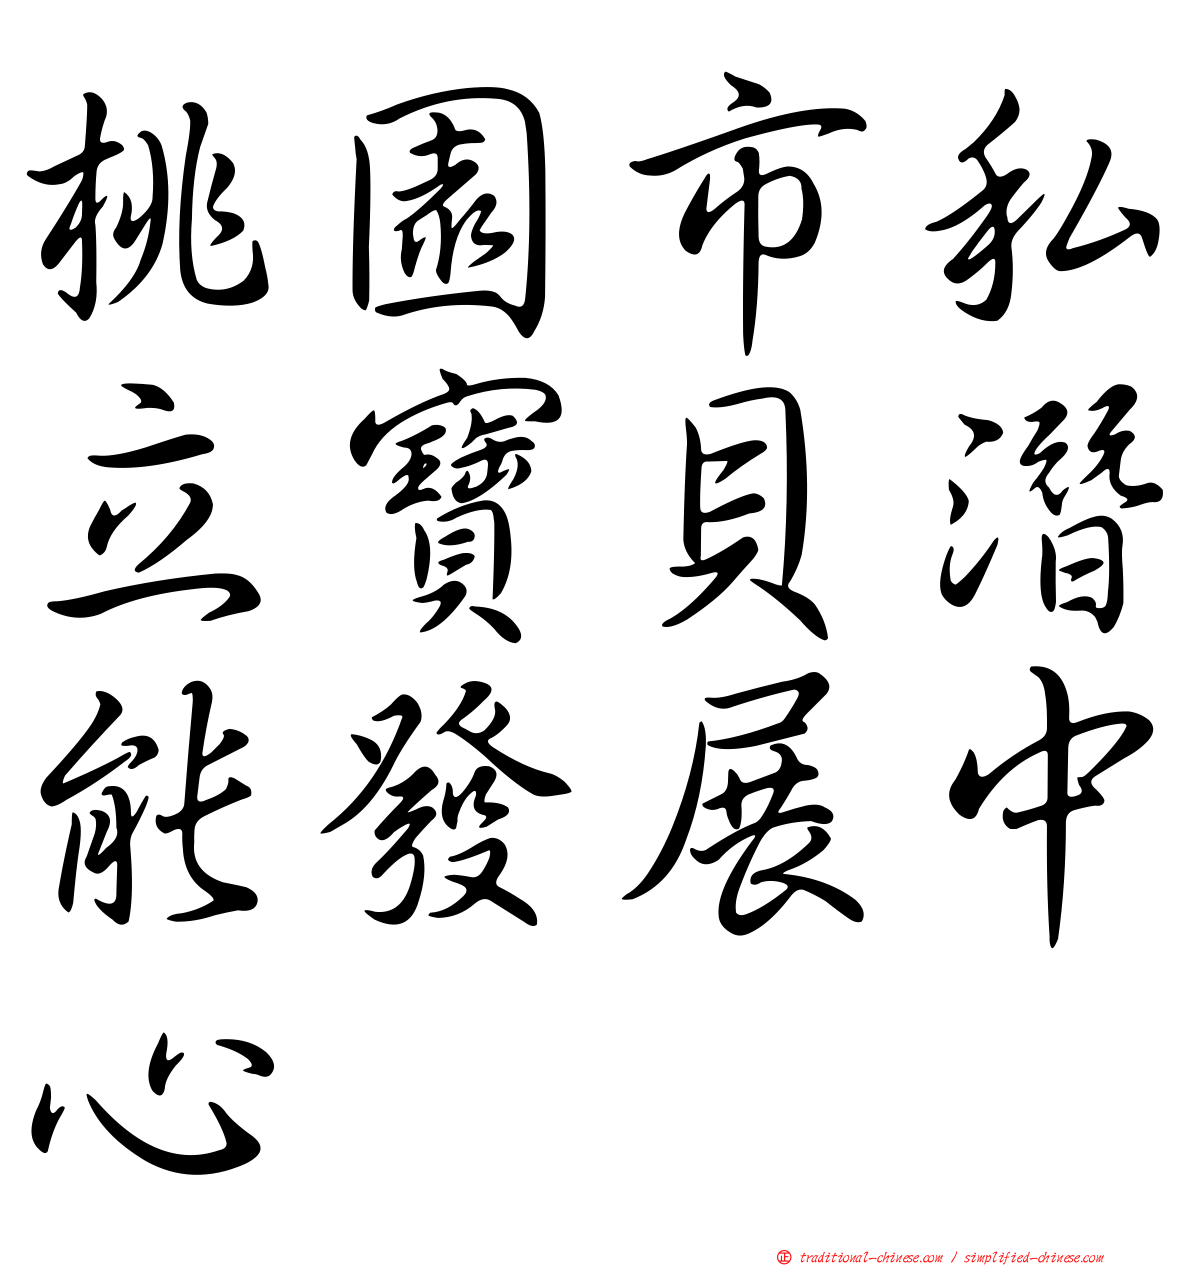 桃園市私
立寶貝潛
能發展中
心
正 traditional-chinese.com / simplified-chinese.com